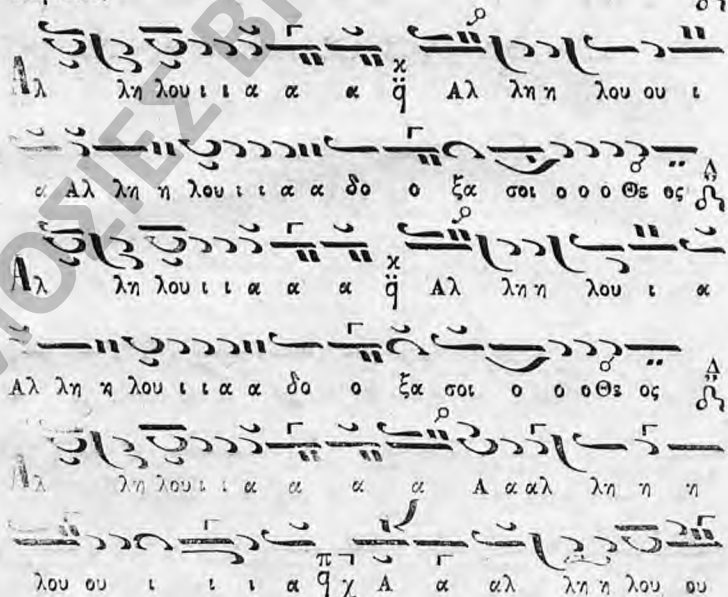 Αλ λη λου ι ι α α α Αλ λη η λου ου ι
α Αλ λη η λου ι ι α α δο ο ξα σοι ο ο ο Θε ος
Αλ λη λου ι ι α α α Αλ λη η λου ι α
Αλ λη η λου ι ι α α δο ο ξα σοι ο ο ο Θε ος
Αλ λη λου ι ι α α α α Α α αλ λη η η
λου ου ι ι ι α Α α αλ λη η λου ου